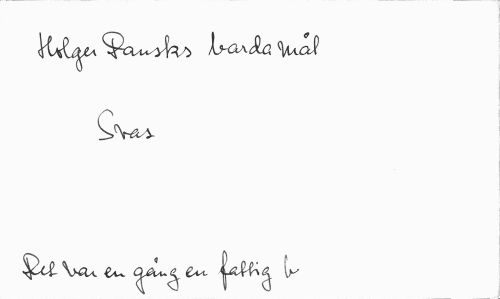 Holger Dansks vardamål
Svas
Det var en gång en fattig b